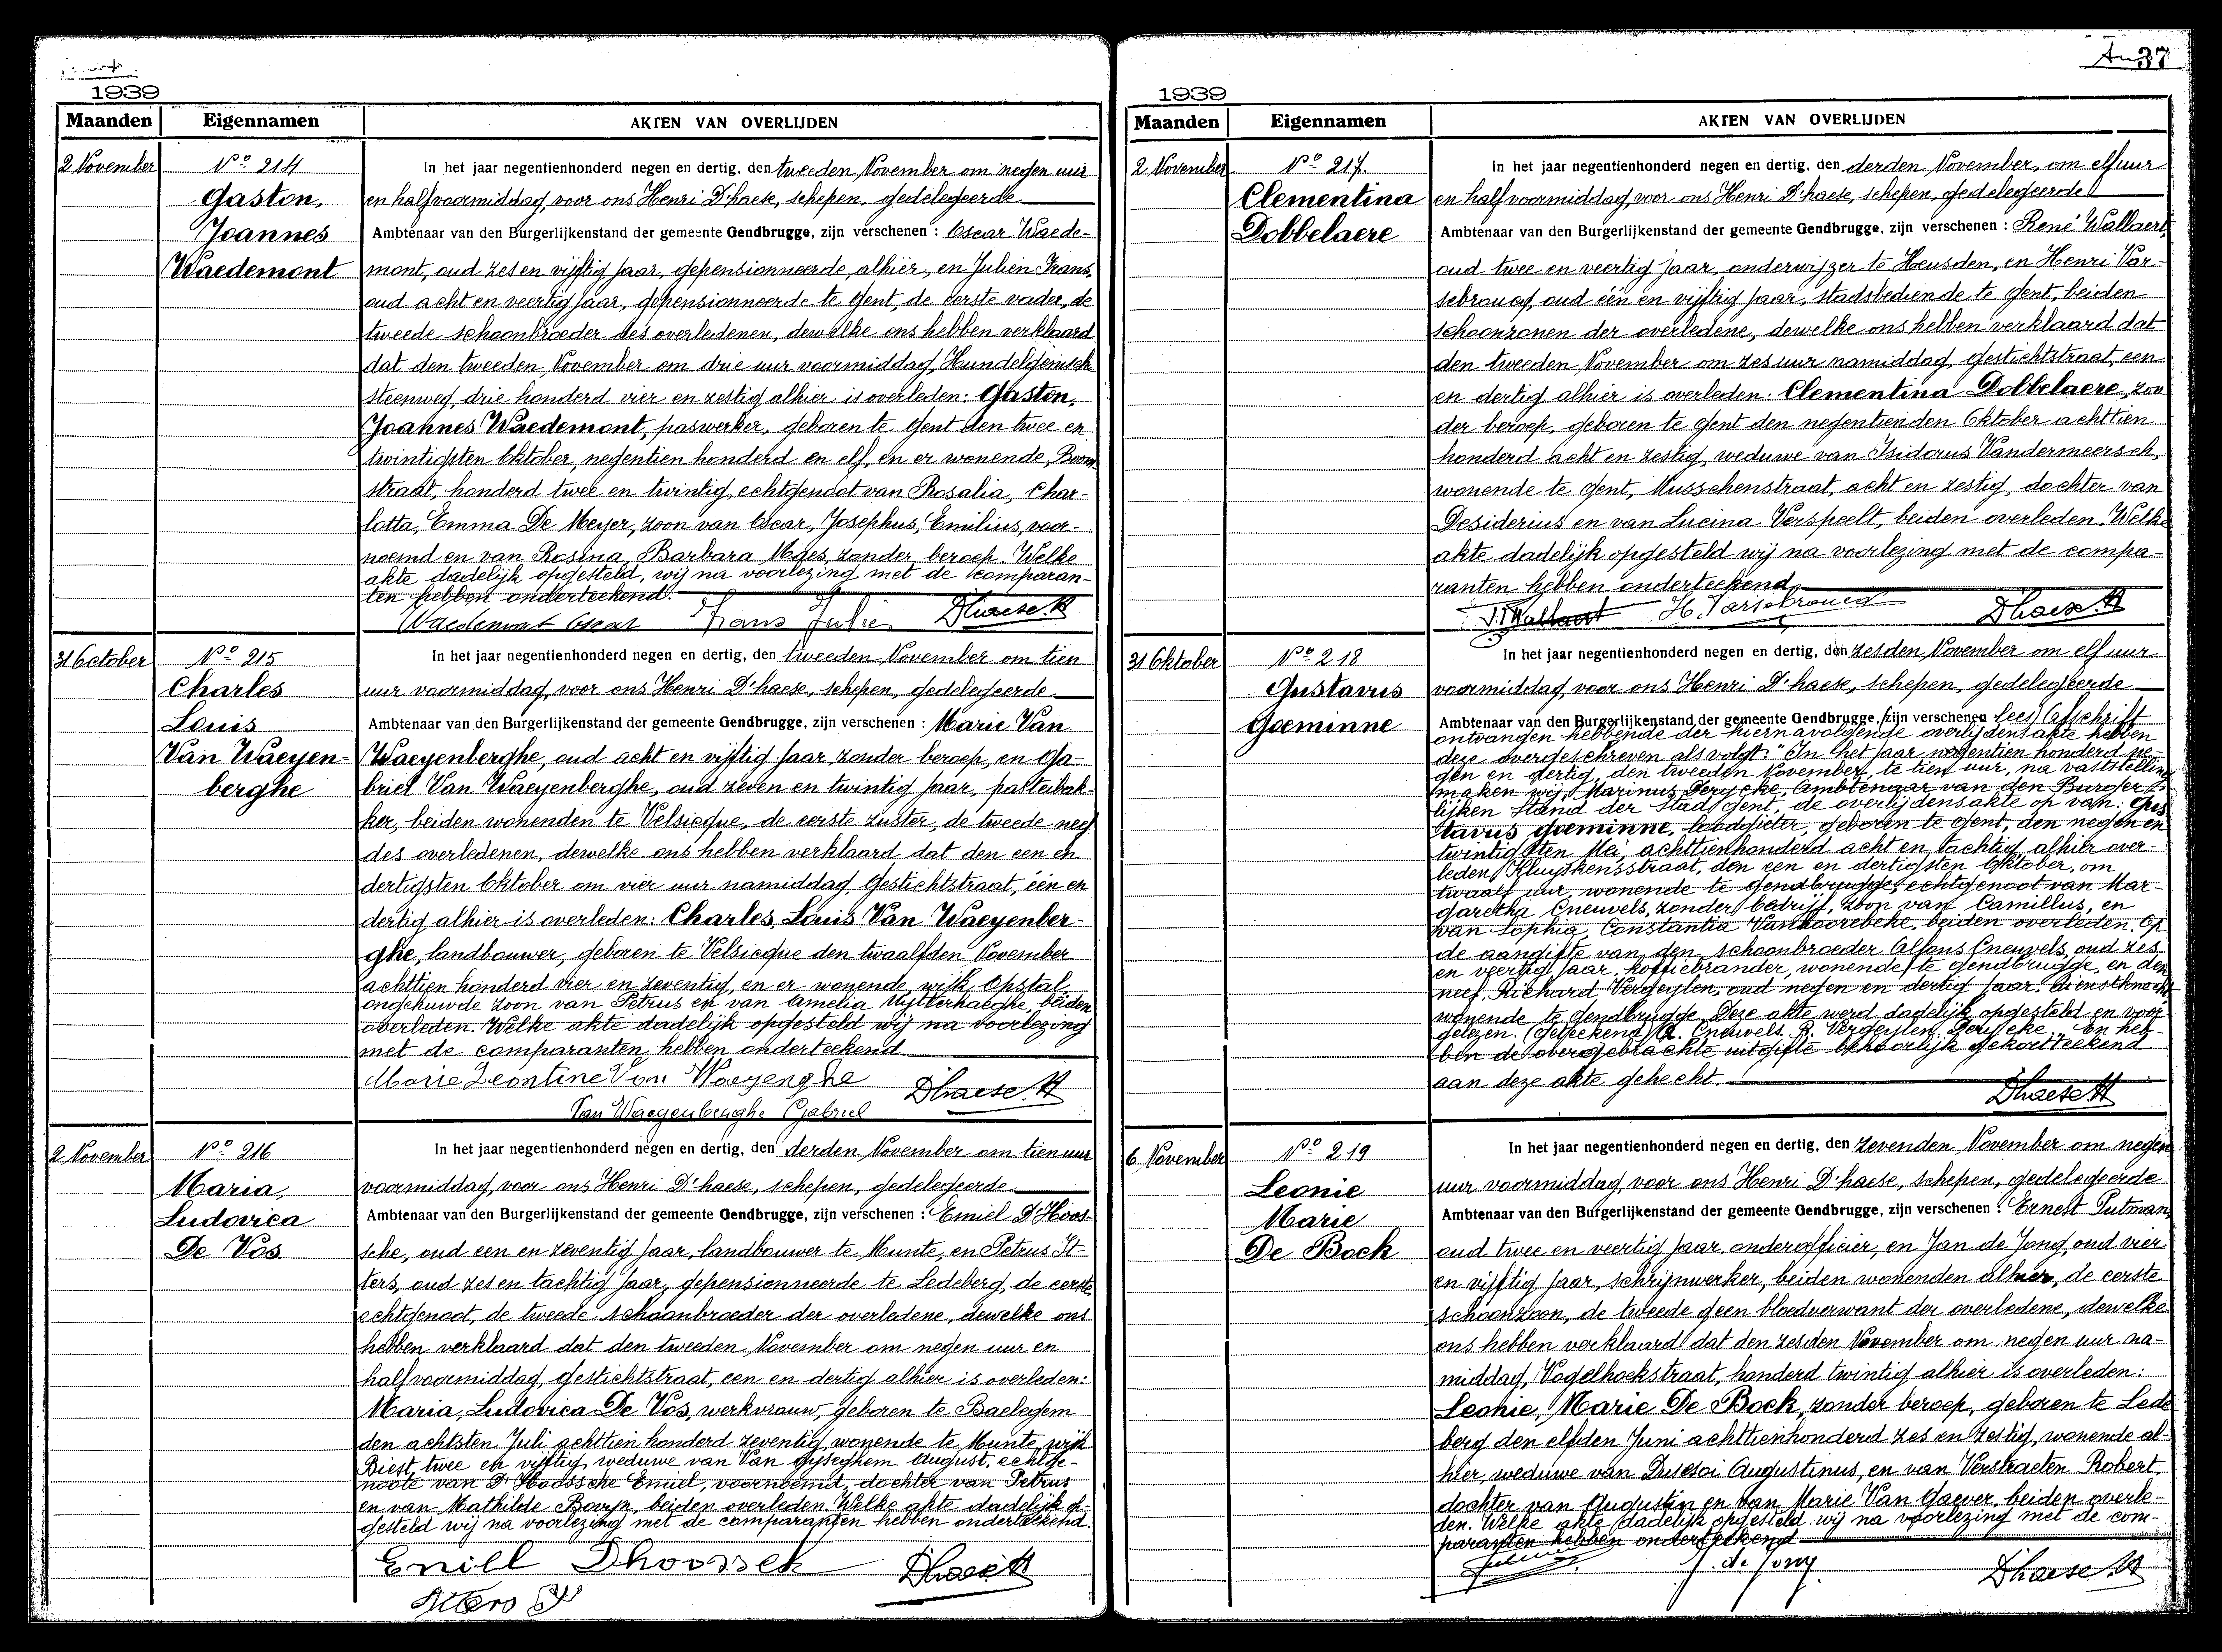 1939
Maanden Eigennamen AKTEN VAN OVERLIJDEN
2 November
Nº 214
Gaston,
Joannes
Waedemont
In het jaar negentienhonderd negen en dertig, den tweeden November om negen uur
en half voormiddag, voor ons Henri D'haese, schepen, gedelegeerde
Ambtenaar van den Burgerlijkenstand der gemeente Gendbrugge, zijn verschenen : Oscar Waede-
mont, oud zes en vijftig jaar, gepensionneerde alhier, en Julien Frans,
oud acht en veertig jaar, gepensionneerde te Gent, de eerste vader, de
tweede schoonbroeder des overledenen, dewelke ons hebben verklaard
dat den tweeden November om drie uur voormiddag, Hundelgemsch
steenweg, drie honderd vier en zestig alhier is overleden: Gaston,
Joannes Waedemont, paswerker, geboren te Gent den twee en
twintigsten Oktober negentien honderd en elf, en er wonende, Boom
straat, honderd twee en twintig, echtgenoot van Rosalia, Char-
lotta, Emma De Meyer, zoon van Oscar, Josephus, Emilius, voor-
noemd en van Rosina Barbara Maes, zonder beroep. Welke
akte dadelijk opgesteld, wij na voorlezing met de comparan-
ten hebben onderteekend.
Waedemont Oscar Frans Julien Dhaese H
31 October
Nº 215
Charles
Louis
Van Waeyen-
berghe
In het jaar negentienhonderd negen en dertig, den tweeden November om tien
uur voormiddag, voor ons Henri D'haese, schepen, gedelegeerde
Ambtenaar van den Burgerlijkenstand der gemeente Gendbrugge, zijn verschenen : Marie Van
Waeyenberghe, oud acht en vijftig jaar, zonder beroep, en Ga-
briel Van Waeyenberghe, oud zeven en twintig jaar, pasteibak-
ker, beiden wonenden te Velsicque, de eerste zuster, de tweede neef
des overledenen, dewelke ons hebben verklaard dat den een en
dertigsten Oktober om vier uur namiddag Gestichtstraat, één en
dertig alhier is overleden: Charles, Louis Van Waeyenber-
ghe, landbouwer, geboren te Velsicque den twaalfden November
achttien honderd vier en zeventig, en er wonende, wijk Opstal,
ongehuwde zoon van Petrus en van Amelia Uytterhaeghe, beiden
overleden. Welke akte dadelijk opgesteld wij na voorlezing
met de comparanten hebben onderteekend
Marie Leontine Van Waeyenghe Dhaese H
Van Waeyenberghe Gabriel
2 November
Nº 216
Maria,
Ludovica
De Vos
In het jaar negentienhonderd negen en dertig, den derden November om tien uur
voormiddag, voor ons Henri D'haese, schepen, gedelegeerde
Ambtenaar van den Burgerlijkenstand der gemeente Gendbrugge, zijn verschenen : Emiel D'Hoos-
sche, oud een en zeventig jaar, landbouwer te Munte, en Petrus It-
ters, oud zes en tachtig jaar, gepensionneerde te Ledeberg, de eerste
echtgenoot, de tweede schoonbroeder der overledene, dewelke ons
hebben verklaard dat den tweeden November om negen uur en
half voormiddag, gestichtstraat, een en dertig alhier is overleden:
Maria, Ludovica De Vos, werkvrouw, geboren te Baelegem
den achtsten Juli achttien honderd zeventig, wonende te Munte, wijk
Biest, twee en vijftig, weduwe van Van Gyseghem August, echtge-
noote van D'Hoossche Emiel, voornoemd, dochter van Petrus
en van Mathilde Baeyn, beiden overleden. Welke akte dadelijk op-
gesteld wij na voorlezing met de comparanten hebben onderteekend.
Emill Dhoossch Dhaese H
37
1939
Maanden Eigennamen AKTEN VAN OVERLIJDEN
2 November
Nº 217
Clementina
Dobbelaere
In het jaar negentienhonderd negen en dertig, den derden November, om elf uur
en half voormiddag, voor ons Henri D'haese, schepen, gedelegeerde
Ambtenaar van den Burgerlijkenstand der gemeente Gendbrugge, zijn verschenen : René Walbaert,
oud twee en veertig jaar, onderwijzer te Heusden, en Henri Var-
sebroucq, oud één en vijftig jaar, stadsbediende te Gent, beiden
schoonzonen der overledene, dewelke ons hebben verklaard dat
den tweeden November om zes uur namiddag, gestichtstraat, een
en dertig alhier is overleden: Clementina Dobbelaere, zon
der beroep, geboren te Gent den negentienden Oktober achttien
honderd acht en zestig, weduwe van Isidorus Vandermeersch,
wonende te Gent, Musschenstraat, acht en zestig, dochter van
Desiderius en van Lucina Verspeelt, beiden overleden. Welke
akte dadelijk opgesteld wij na voorlezing met de compa-
ranten hebben onderteekend
H. Varsebroucq Dhaese H
31 Oktober
Nº 218
Gustavus
Goeminne
In het jaar negentienhonderd negen en dertig, den zesden November om elf uur
voormiddag, voor ons Henri D'haese, schepen, gedelegeerde
Ambtenaar van den Burgerlijkenstand der gemeente Gendbrugge, zijn verschenen lees) Afschrift
ontvangen hebbende der hiernavolgende overlijdensakte hebben
deze overgeschreven als volgt: "In het jaar negentien honderd ne-
gen en dertig, den tweeden November, te tien uur, na vaststelling
maken wij, Marinus Derycke, Ambtenaar van den Burger-
lijken Stand der Stad Gent, de overlijdensakte op van: Gus
tavus Goeminne, loodgieter, geboren te Gent, den negen en
twintigsten Mei, achttienhonderd acht en tachtig, alhier over-
leden, Kluyskensstraat, den een en dertigsten Oktober, om
twaalf uur, wonende te Gendbrugge, echtgenoot van Mar-
garetha Cneuvels, zonder bedrijf, zoon van Camillus, en
van Sophia, Constantia Vanhoorebeke, beiden overleden. Op
de aangifte van den schoonbroeder Alfons Cneuvels, oud zes
en veertig jaar, koffiebrander, wonende te Gendbrugge, en den
neef, Richard Vergeylen, oud negen en dertig jaar, dienstknecht
wonende te Gendbrugge. Deze akte werd dadelijk opgesteld en voor-
gelezen. (Geteekend) A. Cneuvels, R. Vergeylen, Derycke". En heb-
ben de overgebrachte uitgifte behoorlijk gekortteekend
aan deze akte gehecht.
Dhaese H
6 November
Nº 219
Leonie
Marie
De Bock
In het jaar negentienhonderd negen en dertig, den zevenden November om negen
uur voormiddag, voor ons Henri D'haese, schepen, gedelegeerde
Ambtenaar van den Burgerlijkenstand der gemeente Gendbrugge, zijn verschenen : Ernest Putman,
oud twee en veertig jaar, onderofficier, en Jan de Jong, oud vier
en vijftig jaar, schrijnwerker, beiden wonenden alhier, de eerste
schoonzoon, de tweede geen bloedverwant der overledene, dewelke
ons hebben verklaard dat den zesden November om negen uur na-
middag, Vogelhoekstraat, honderd twintig alhier is overleden:
Leonie, Marie De Bock, zonder beroep, geboren te Lede
berg den elfden Juni achttienhonderd zes en zestig, wonende al-
hier, weduwe van Dusesoi Augustinus, en van Verstraeten Robert,
dochter van Augustin en van Marie Van Gaever, beiden overle-
den. Welke akte dadelijk opgesteld wij na voorlezing met de com-
paranten hebben onderteekend
J. de Jong Dhaese H